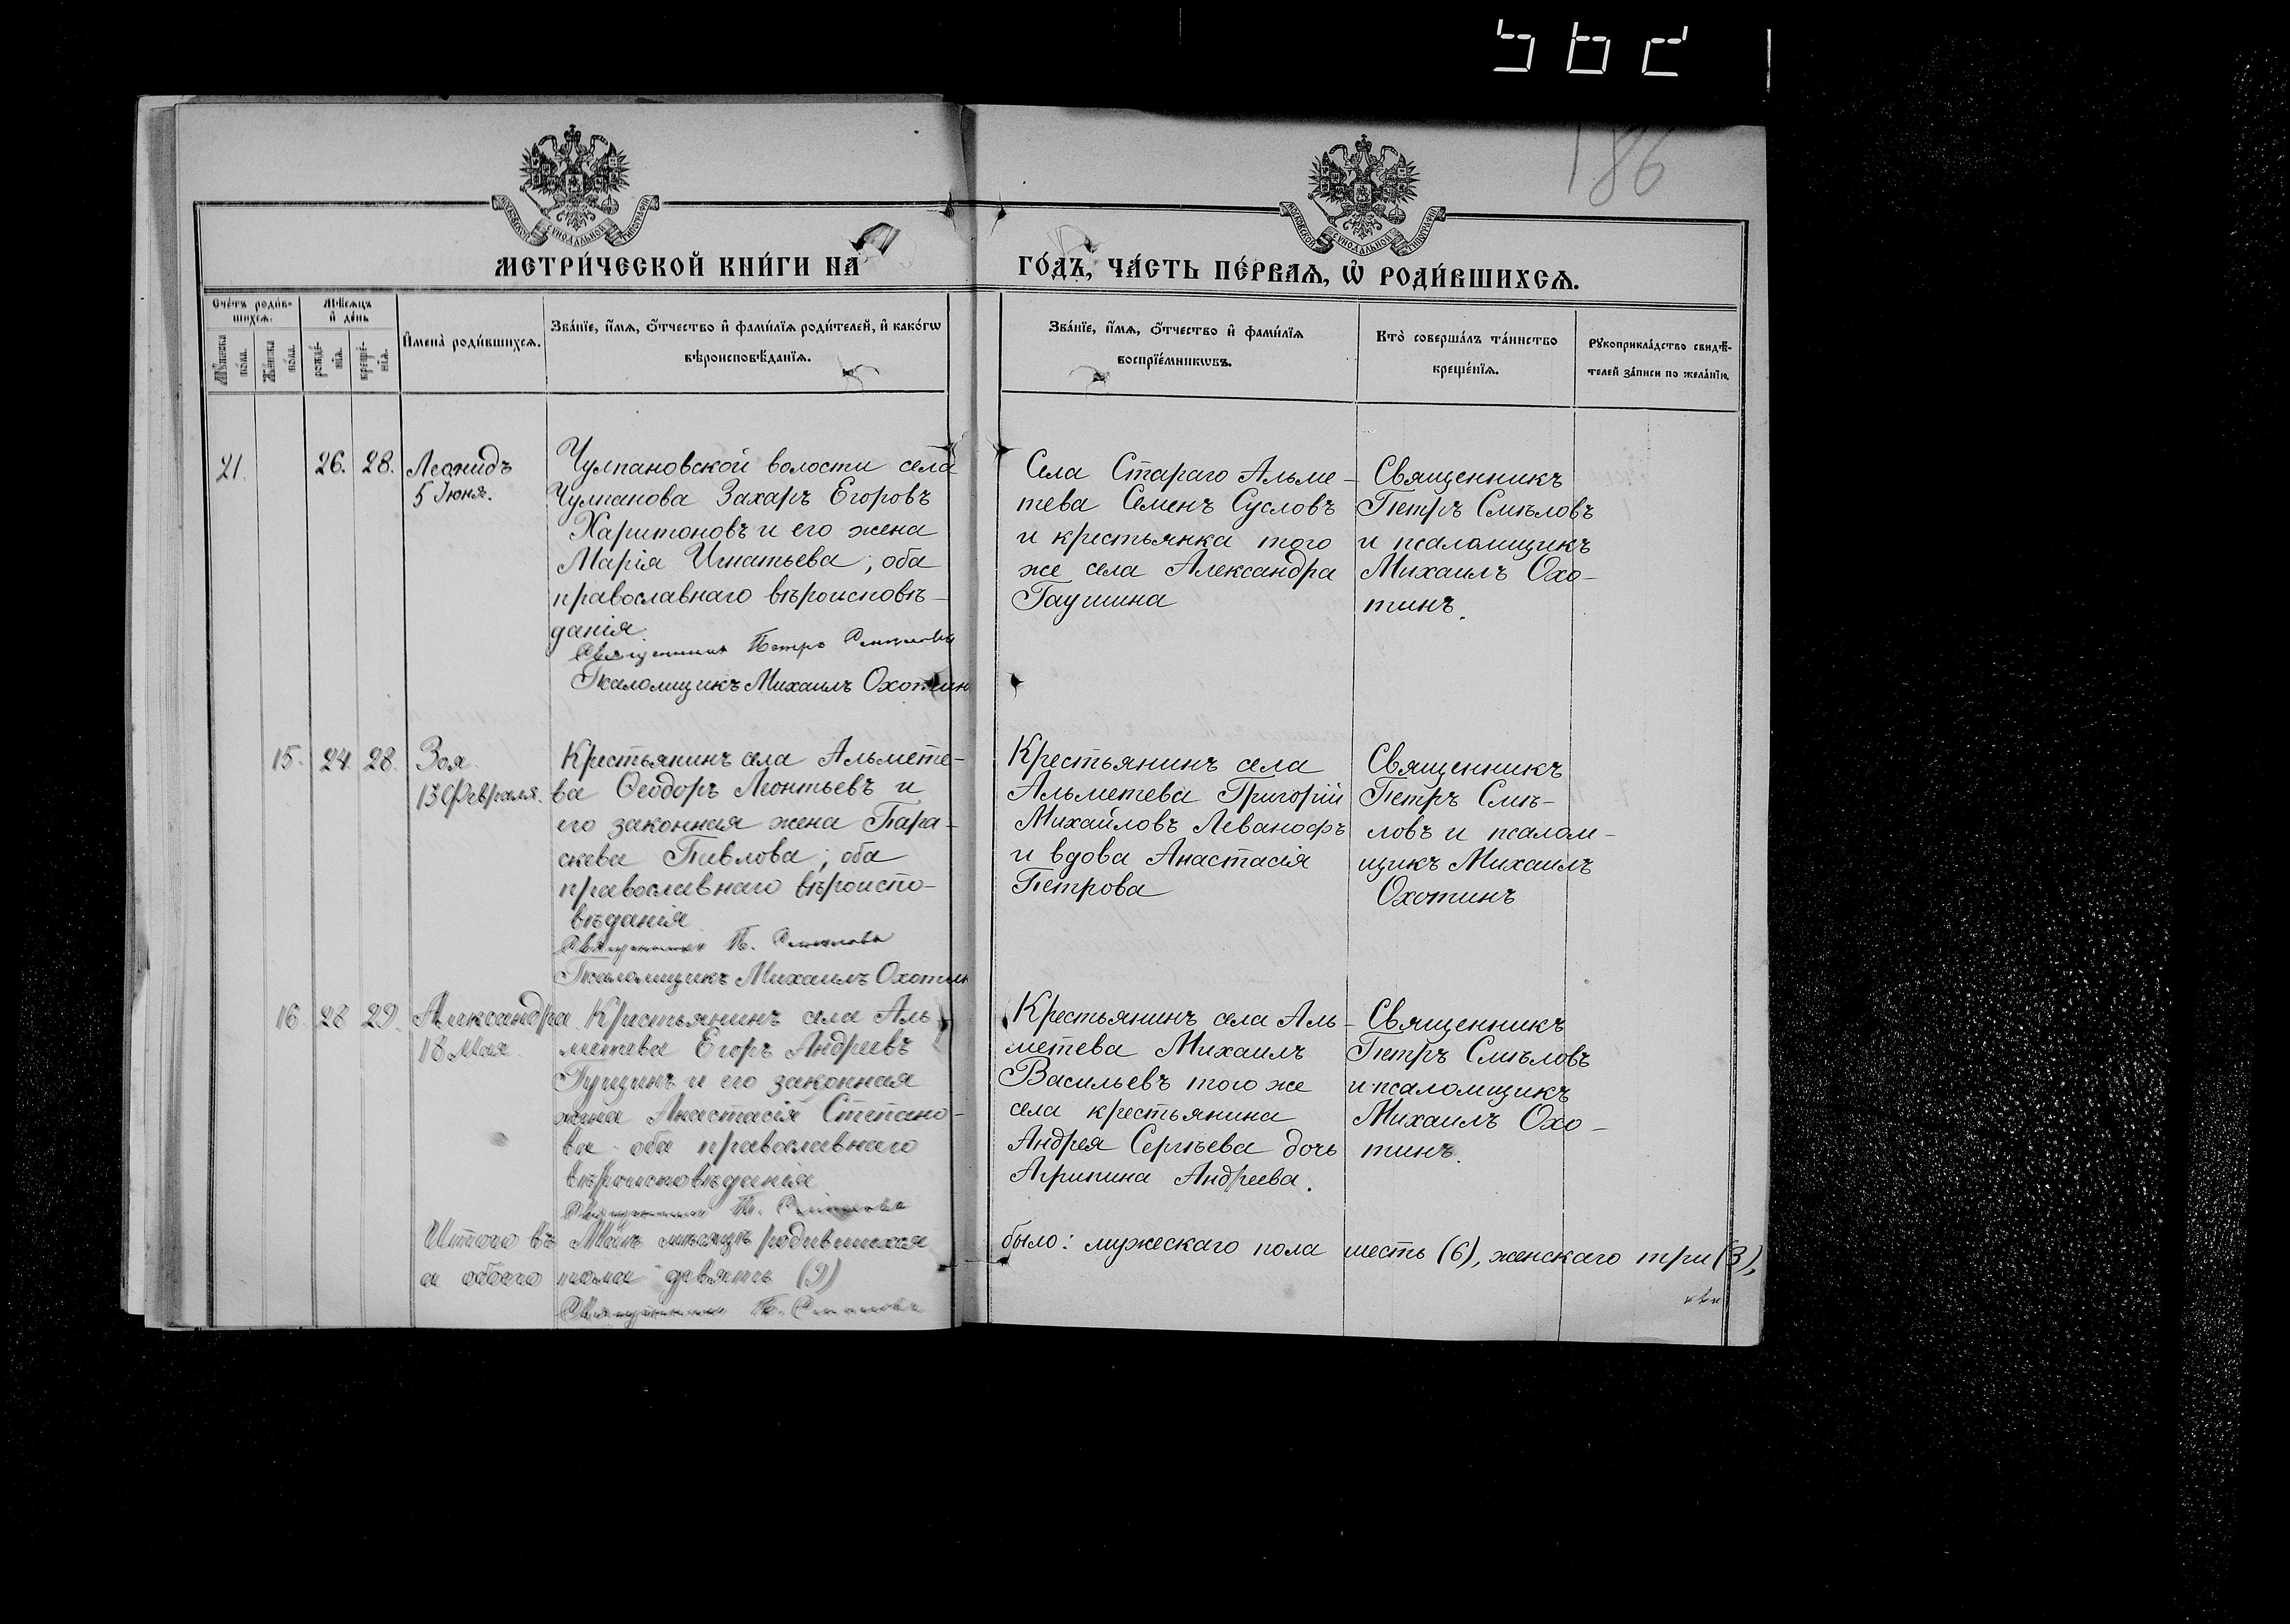 186
МЕТРИ́ЧЕСКОЙ КНИ́ГИ НА
ГО́ДЪ, ЧА́СТЬ ПЕ́РВАЯ, Ѿ РОДИ́ВШИХСЯ.
Счетъ родив-
шихся.
Мѣсяцъ
и день
Мужеска
пола.
Женска
пола.
рожде-
нія.
креще-
нія.
Имена родившихся.
Званіе, имя, отчество и фамилія родителей, и какогѡ
вѣроисповѣданія.
Званіе, имя, отчество и фамилія
воспріемникѡвъ.
Кто совершалъ таинство
крещенія.
Рукоприкладство свидѣ-
телей записи по желанію.
21.
26.
28.
Леонидъ
5 Іюня.
Чулпановской волости села
Чулпанова Захаръ Егоровъ
Харитоновъ и его жена
Марія Игнатьева, оба
православнаго вѣроисповѣ-
данія
Священникъ Петръ Смѣловъ
Псаломщикъ Михаилъ Охотинъ
Села Стараго Альме-
тева Семенъ Сусловъ
и крестьянка того
же села Александра
Гаушина
Священникъ
Петръ Смѣловъ
и псаломщикъ
Михаилъ Охо-
тинъ.
15.
24.
28.
Зоя
13 Февраля.
Крестьянинъ села Альмете-
ва Ѳеодоръ Леонтьевъ и
его законная жена Пара-
скева Павлова; оба
православнаго вѣроиспо-
вѣданія
Священникъ П. Смѣловъ
Псаломщикъ Михаилъ Охотинъ
Крестьянинъ села
Альметева Григорій
Михайловъ Леванофъ
и вдова Анастасія
Петрова
Священникъ
Петръ Смѣ-
ловъ и псалом-
щикъ Михаилъ
Охотинъ
16
28
29.
Александра
18 Мая
Крестьянинъ села Аль-
метева Егоръ Андреевъ
и его законная
жена Анастасія Степано-
ва оба православнаго
вѣроисповѣданія
Священникъ П. Смѣловъ
Крестьянинъ села Аль-
метева Михаилъ
Васильевъ того же
села крестьянина
Андрея Сергѣева дочь
Агрипина Андреева.
Священникъ
Петръ Смѣловъ
и псаломщикъ
Михаилъ Охо-
тинъ.
Итого въ Маѣ мѣсяцѣ родившихся
было: мужескаго пола шесть (6), женскаго три (3),
а обоего пола девять (9)
Священникъ П. Смѣловъ